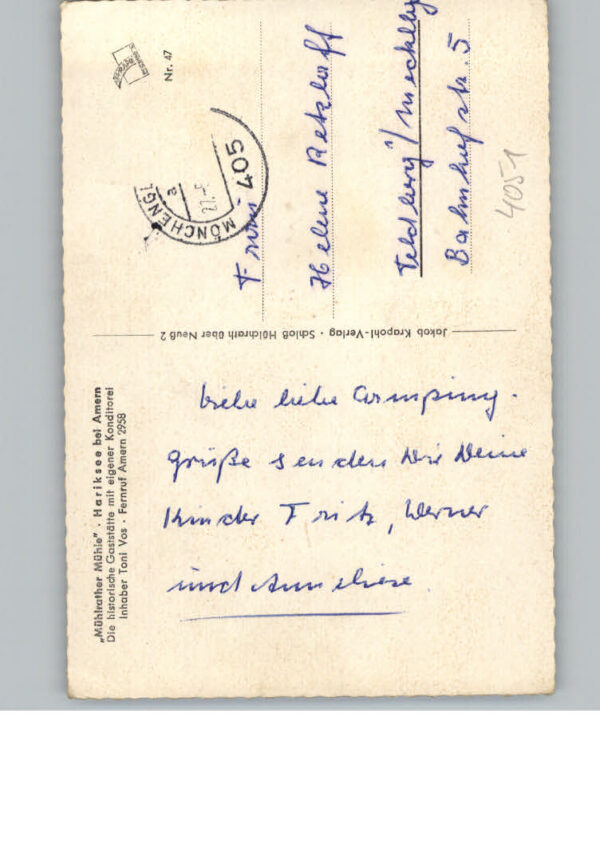 Nr. 47
405
MÖNCHENGL
a
Frau
Helene Retzlaff
Feldberg / Meckleb
Bahnhofstr. 5
4051
Jakob Krapohl-Verlag · Schloß Hülchrath über Neuß 2
„Mühlrather Mühle" · Hariksee bei Amern
Die historische Gaststätte mit eigener Konditorei
Inhaber Toni Vos · Fernruf Amern 2958
Viele liebe Camping-
grüße senden Dir Deine
Kinder Fritz, Werner
und Anneliese.